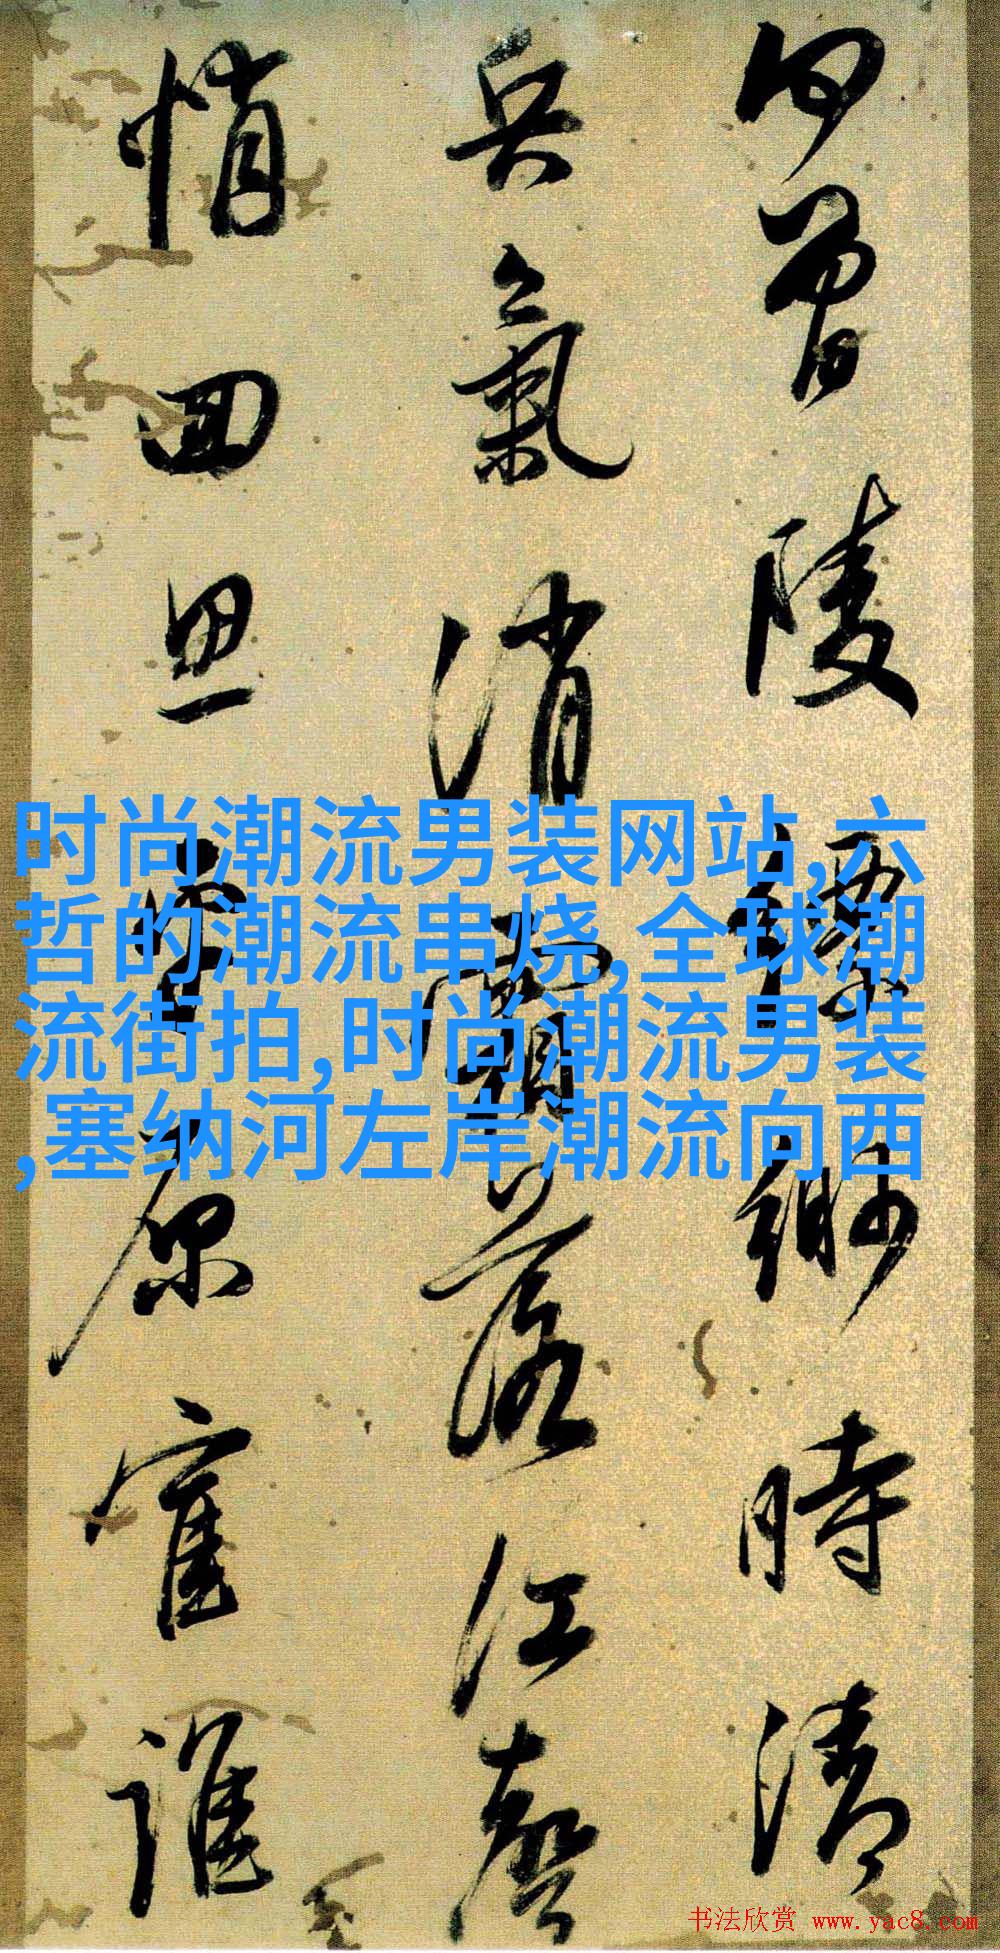 何曾陵繹緲時清
兵氣消霸落江聲
悄回思常原官誰
时尚潮流男装网站,六
哲的潮流串烧,全球潮
流街拍,时尚潮流男装
,塞纳河左岸潮流向西
书法欣赏 www.yac8.com